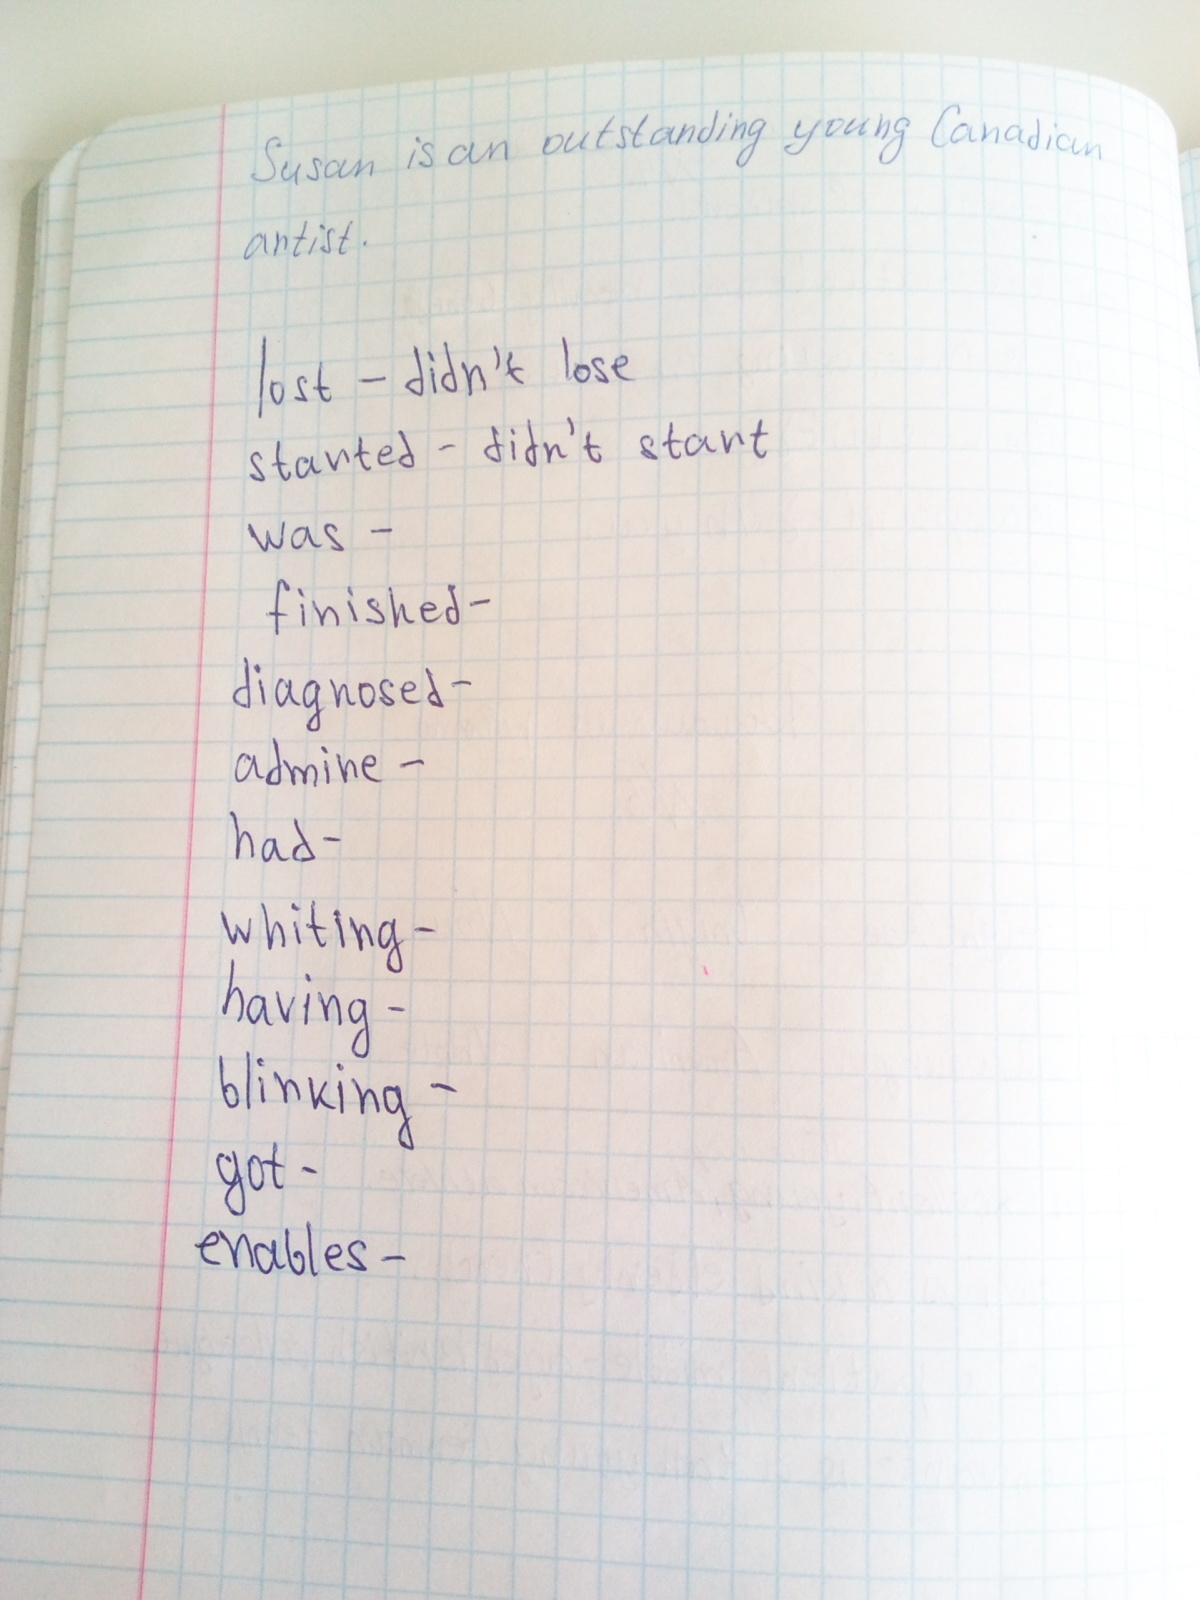 Susan is an outstanding young Canadian
artist.
lost - didn't lose
started - didn't start
was -
finished -
diagnosed -
admine -
had -
whiting -
having -
blinking -
got -
enables -